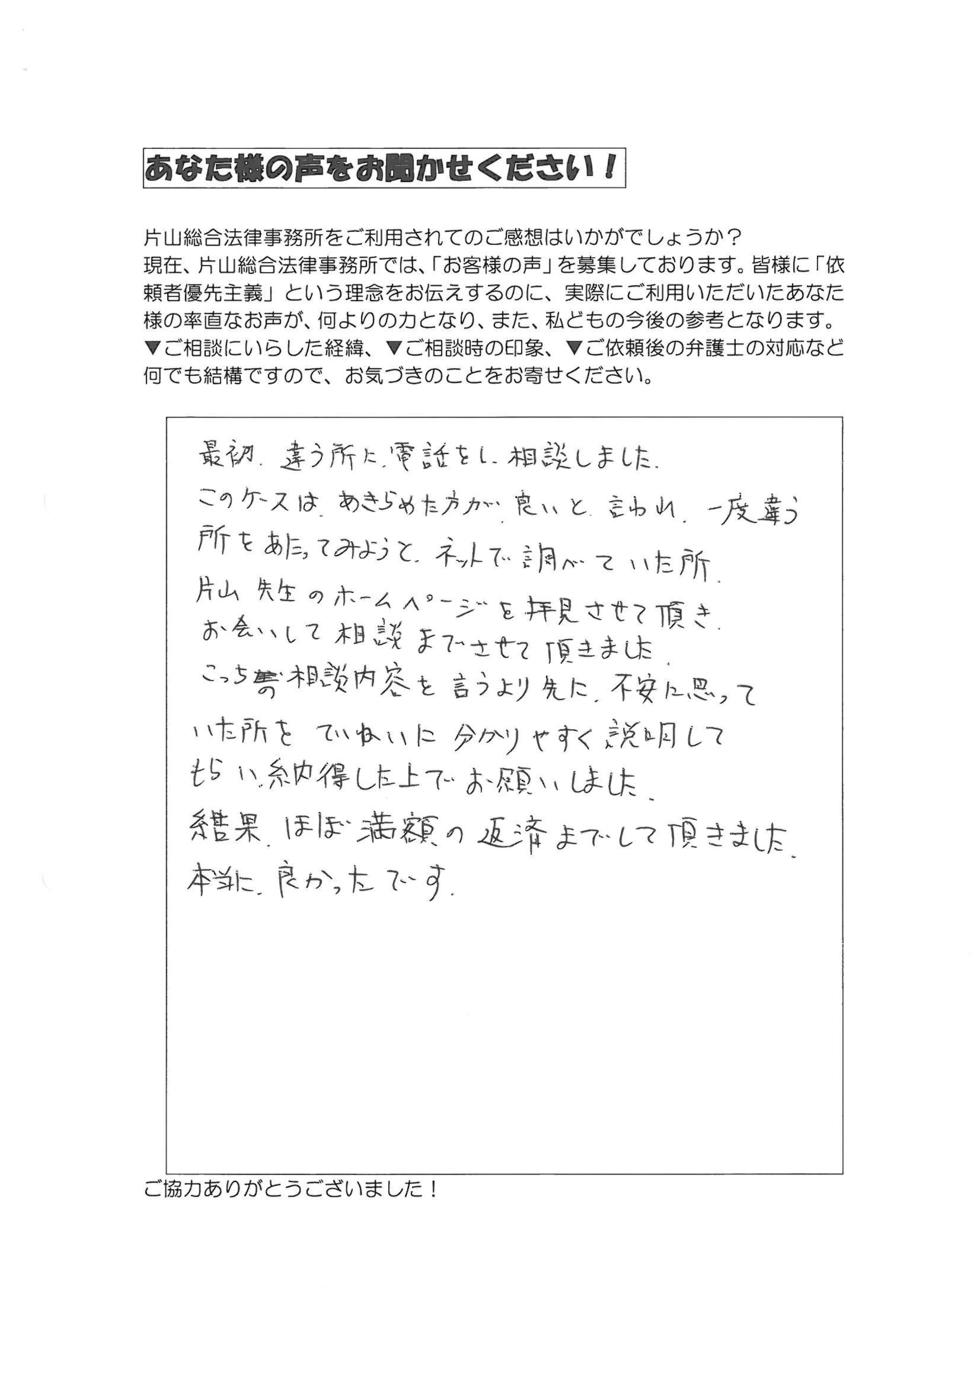 あなた様の声をお聞かせください！
片山総合法律事務所をご利用されてのご感想はいかがでしょうか？
現在、片山総合法律事務所では、「お客様の声」を募集しております。皆様に「依
頼者優先主義」という理念をお伝えするのに、実際にご利用いただいたあなた
様の率直なお声が、何よりの力となり、また、私どもの今後の参考となります。
▼ご相談にいらした経緯、▼ご相談時の印象、▼ご依頼後の弁護士の対応など
何でも結構ですので、お気づきのことをお寄せください。
最初、違う所に、電話をし、相談しました。
このケースは、あきらめた方が、良いと、言われ、一度違う
所をあたってみようと、ネットで調べていた所、
片山先生のホームページを拝見させて頂き、
お会いして相談までさせて頂きました。
こっちの相談内容を言うより先に、不安に思って
いた所をていねいに分かりやすく説明して
もらい、納得した上でお願いしました。
結果、ほぼ満額の返済までして頂きました。
本当に、良かったです。
ご協力ありがとうございました！